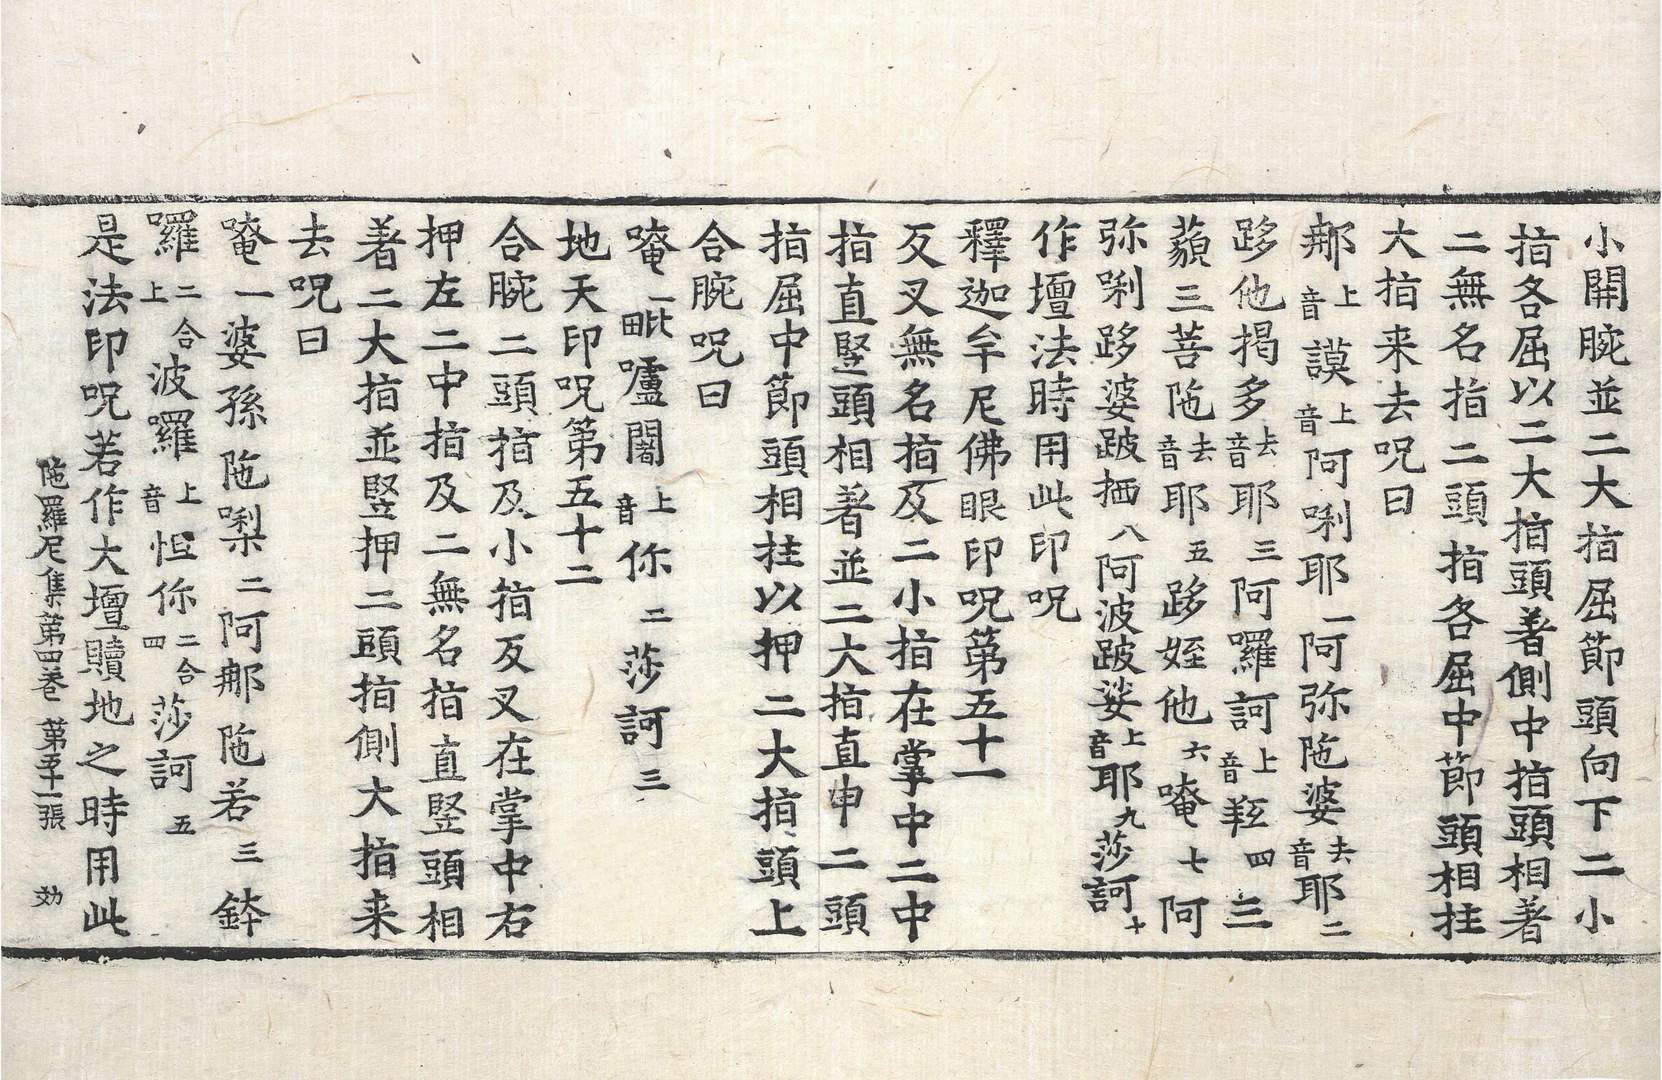 小開腕並二大指屈節頭向下二小
指各屈以二大指頭著側中指頭相著
二無名指二頭指各屈中節頭相拄
大指来去呪曰
那上音謨上音阿唎耶一阿弥陁婆去音耶二
跢他揭多去音耶三阿囉訶上音羟四三
藐三菩陁去音耶五跢姪他六唵七阿
弥唎跢婆跛抲八阿波跛娑上音耶九莎訶十
作壇法時用此印呪
釋迦牟尼佛眼印呪第五十一
反叉無名指及二小指在掌中二中
指直竪頭相著並二大指直申二頭
指屈中節頭相拄以押二大指頭上
合腕呪曰
唵一毗嚧闍上音你二莎訶三
地天印呪第五十二
合腕二頭指及小指反叉在掌中右
押左二中指及二無名指直竪頭相
著二大指並竪押二頭指側大指来
去呪曰
唵一婆孫陁㗚二阿那陁若三鉢
囉二合上波囉上音怛你二合四莎訶五
是法印呪若作大壇贖地之時用此
陁羅尼集第四卷 第五十一張 効